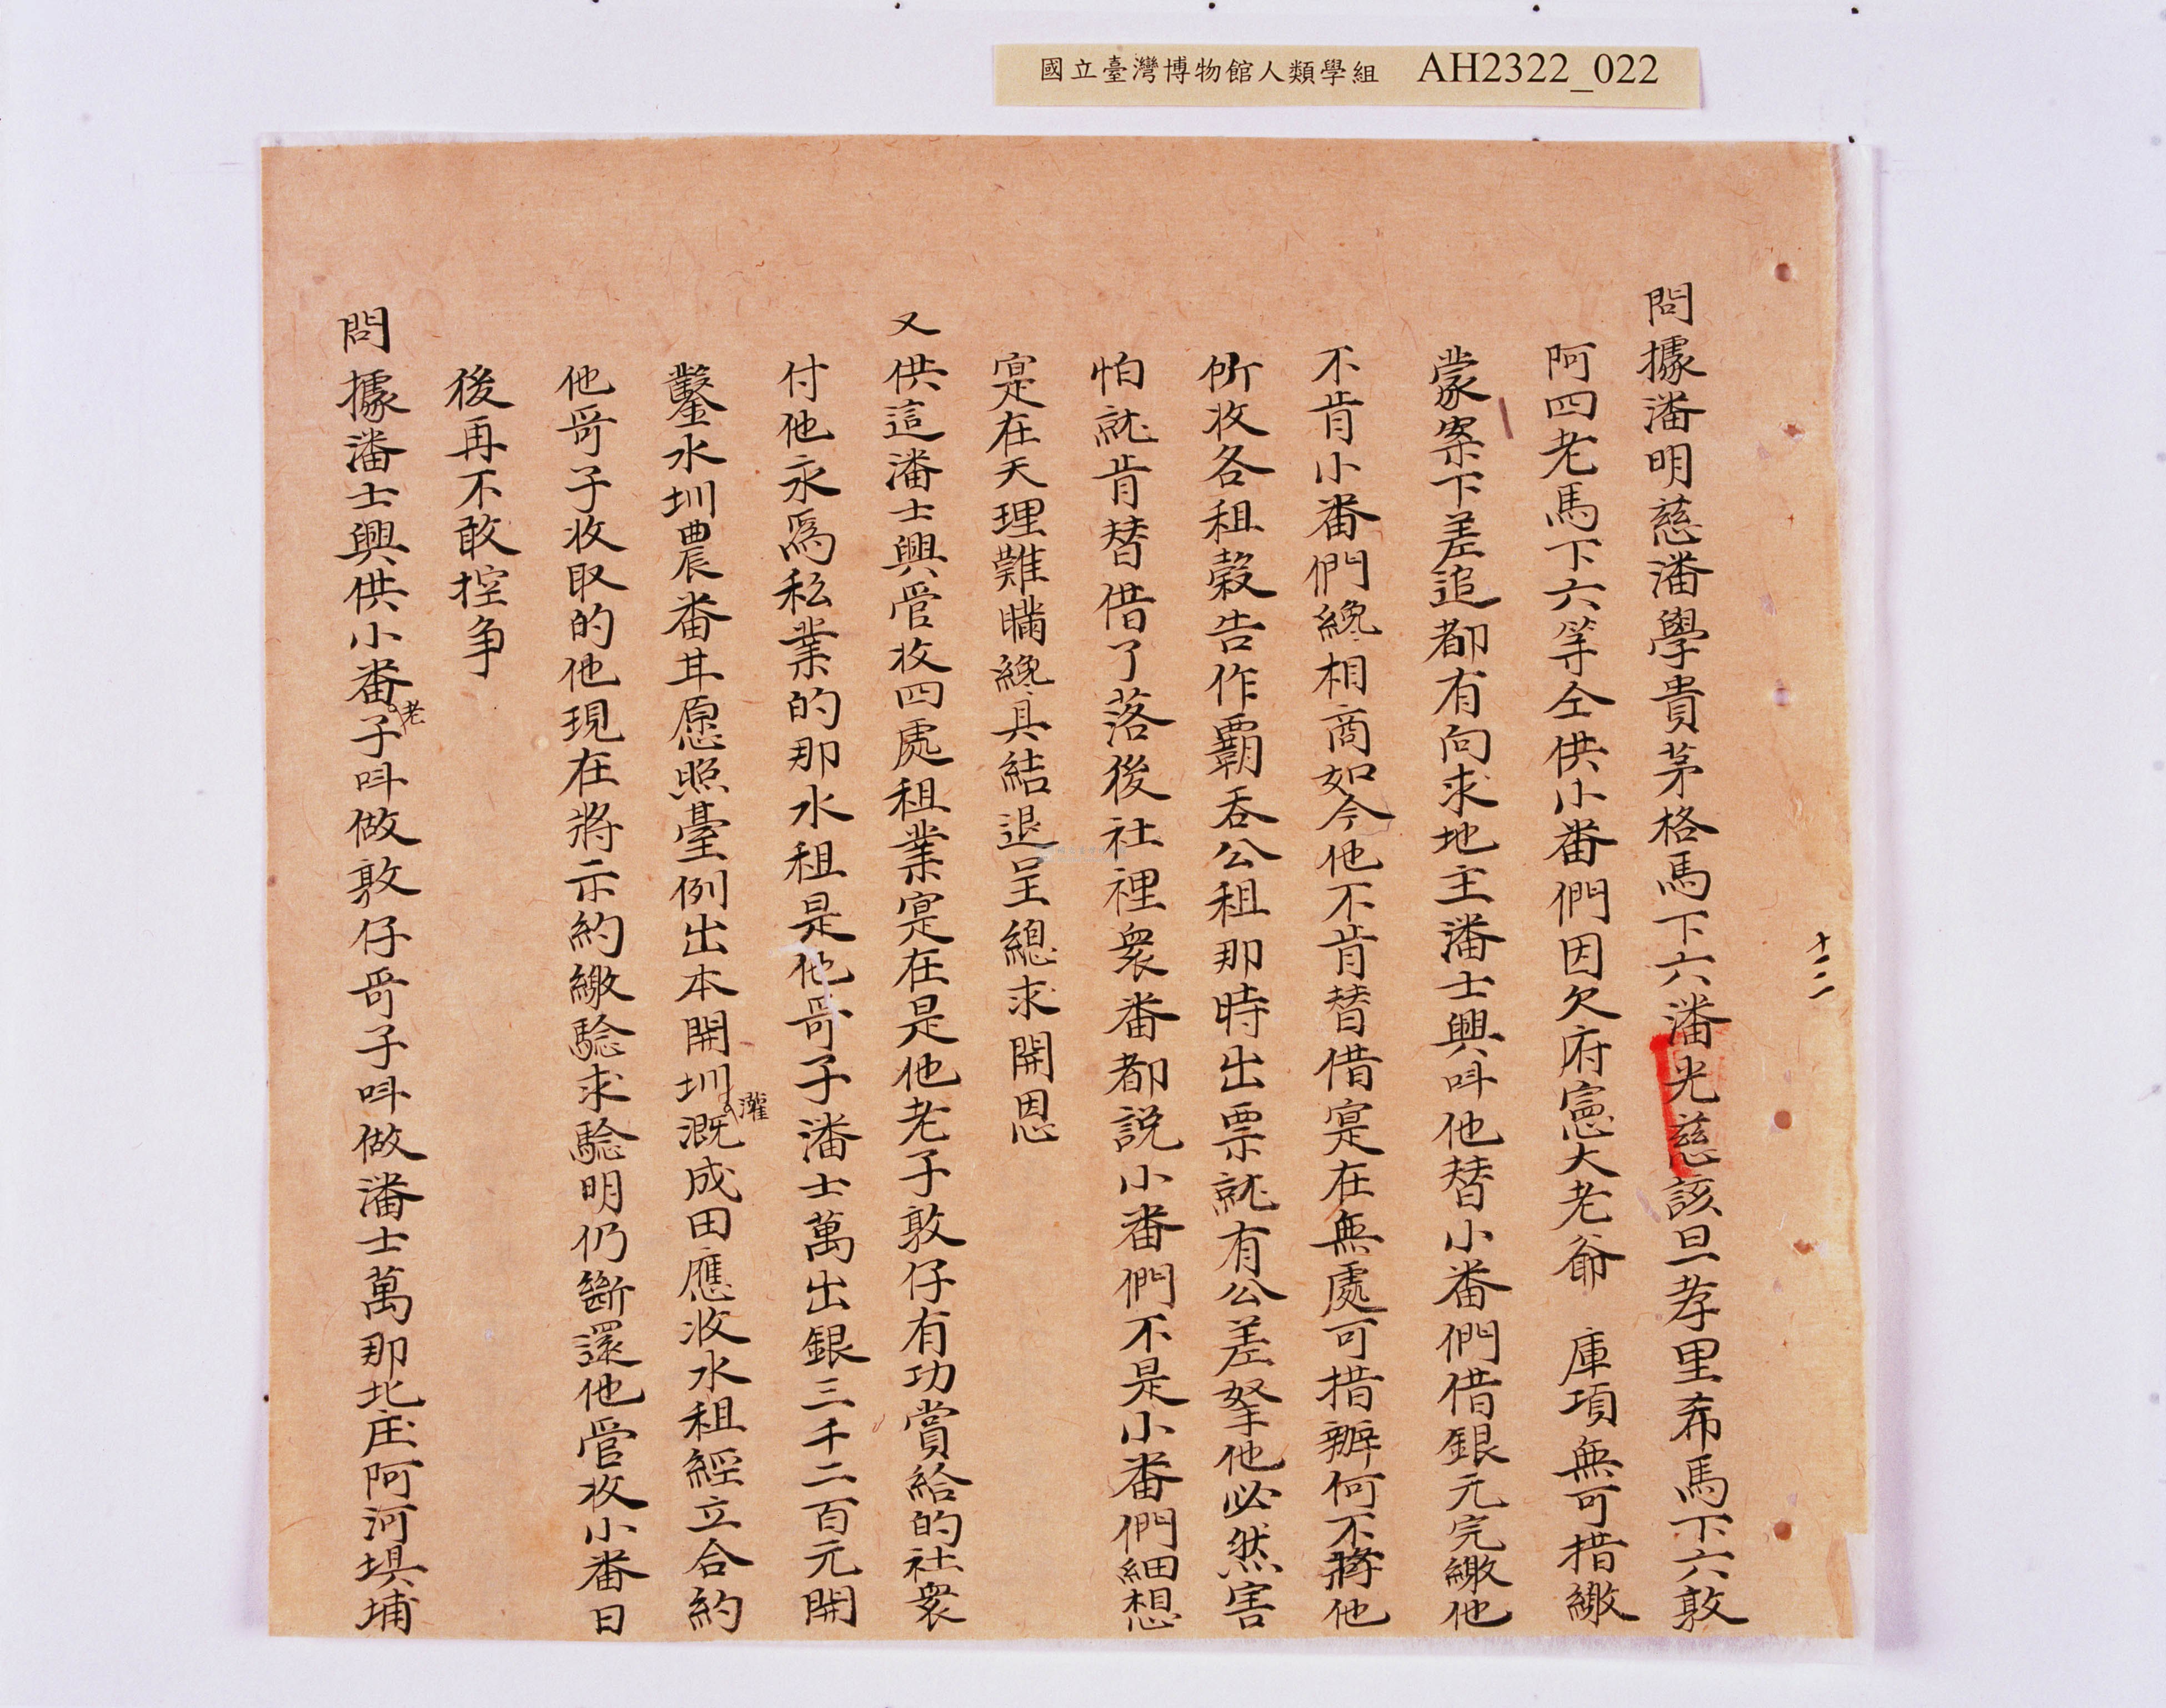 國立臺灣博物館人類學組 AH2322_022
十二
問據潘明慈潘學貴茅格馬下六潘光慈該旦孝里希馬下六敦
阿四老馬下六等仝供小番們因欠府憲大老爺 庫項無可措繳
蒙案下差追都有向求地主潘士興呌他替小番們借銀元完繳他
不肯小番們纔相商如今他不肯替借寔在無處可措辦何不將他
所收各租榖告作霸吞公租那時出票就有公差拏他必然害
怕就肯替借了落後社裡衆番都説小番們不是小番們細想
寔在天理難瞞纔具結退呈總求開恩
又供這潘士興管收四處租業寔在是他老子敦仔有功賞給的社衆
付他永爲私業的那水租是他哥子潘士萬出銀三千二百元開
鑿水圳農番甘愿照臺例出本開圳灌溉成田應收水租經立合約
他哥子收取的他現在將示約繳騐求騐明仍斷還他管收小番日
後再不敢控争
問據潘士興供小番老子呌做敦仔哥子呌做潘士萬那北庄阿河埧埔